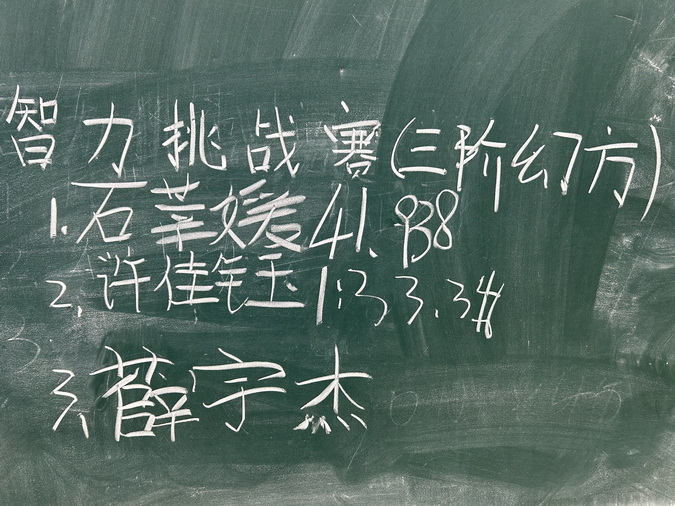 智力挑战赛(三阶幻方)
1.石莘媛41.938
2.许佳钰1:33.3
3.薛宇杰